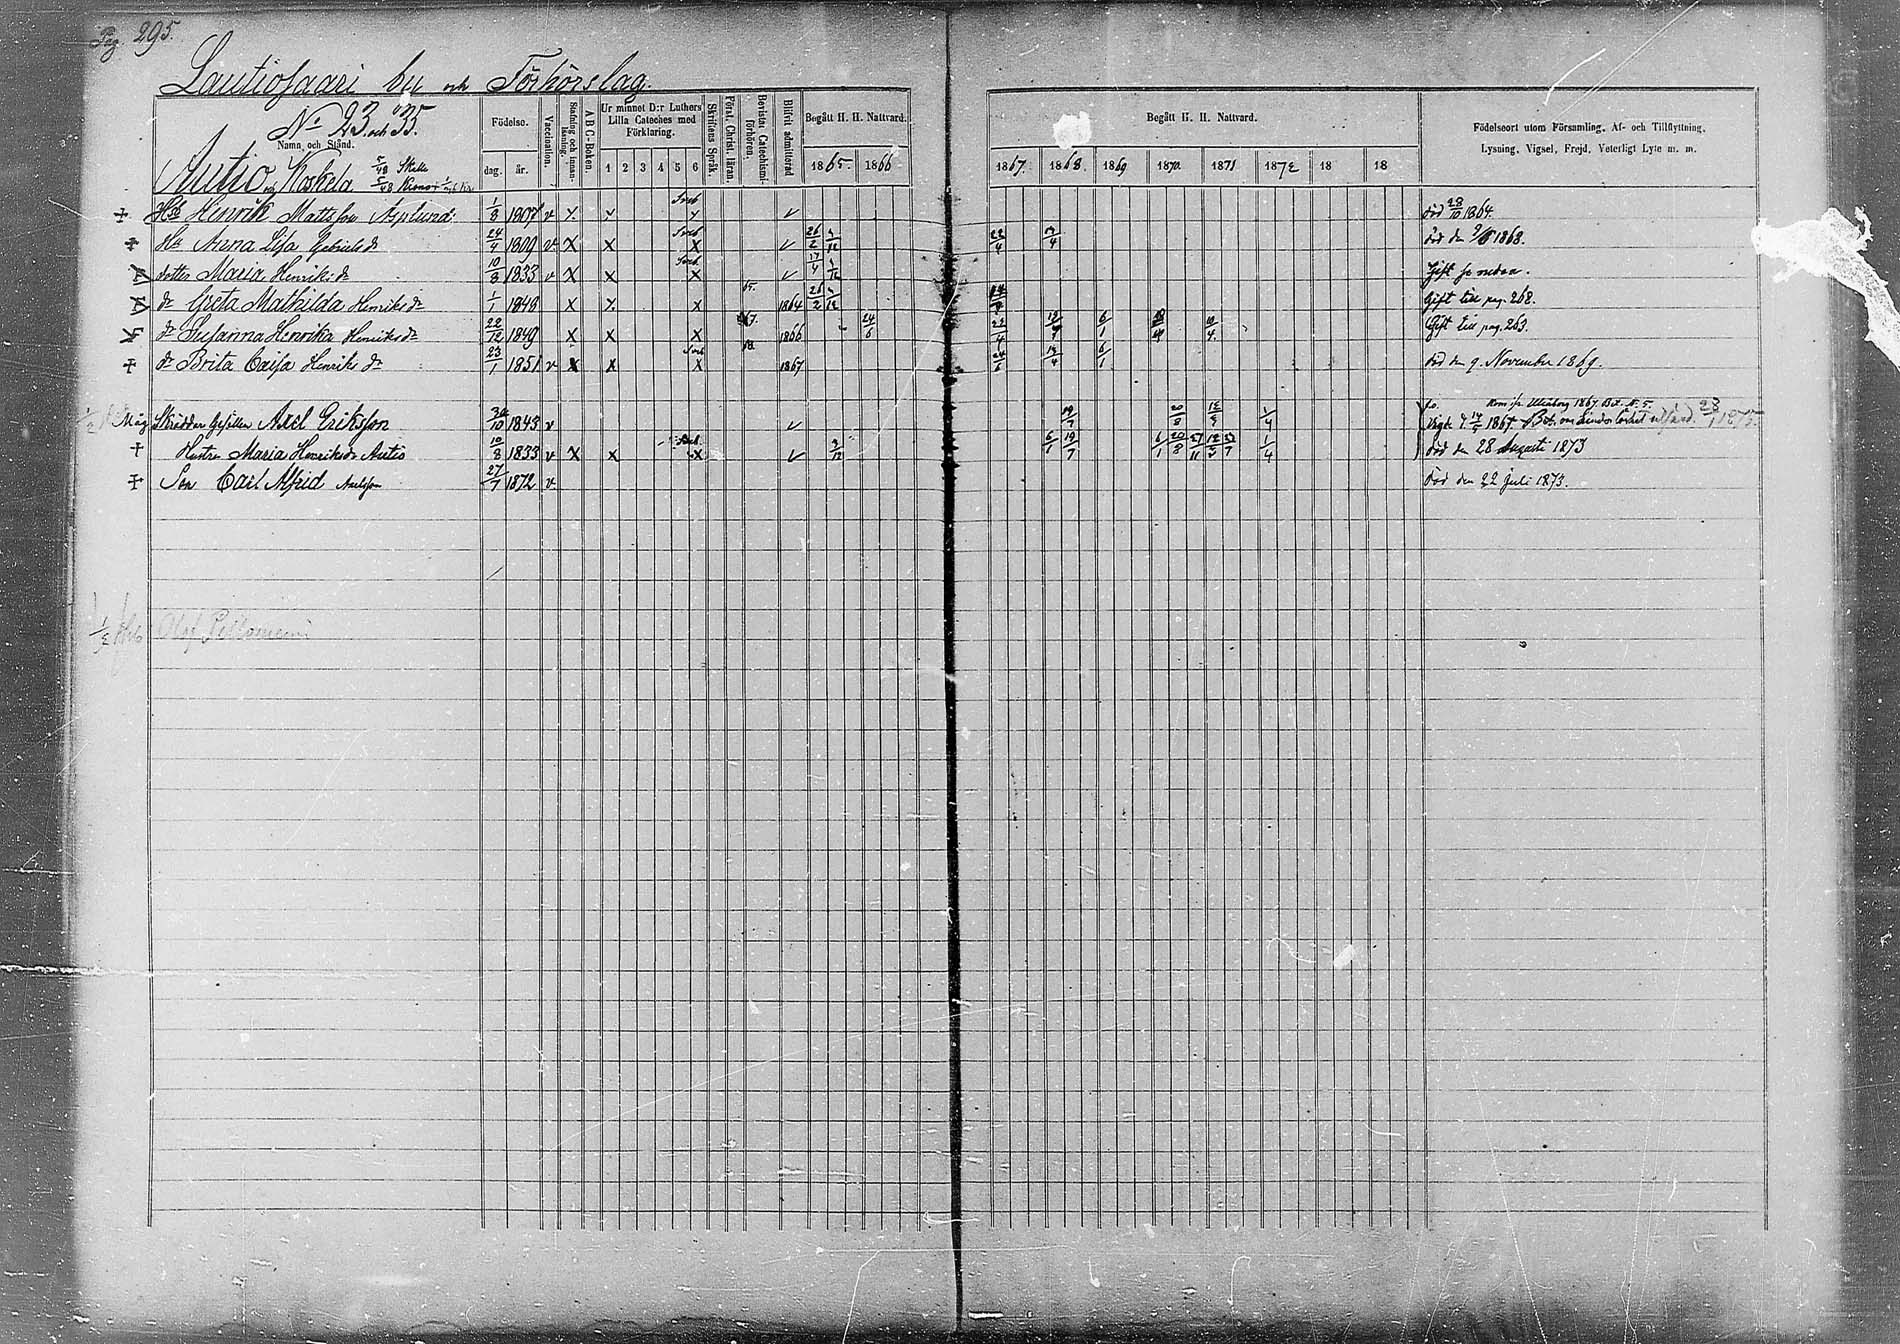 Pag. 295.
Lautiosaari by och Förhörslag.
No 23 och 35.
Namn och Stånd.
Autio och Koskela
Födelse.
dag. år.
Vaccination.
Stafning och innanläsning.
A B C-Boken.
Ur minnet D:r Luthers Lilla Cateches med Förklaring.
1 2 3 4 5 6
Skriftens Språk.
Först. Christl. läran.
Bevistat Catechismiförhören.
Blifvit admitterad
Begått H. H. Nattvard.
1865. 1866
Begått H. H. Nattvard.
1867. 1868. 1869 1870. 1871 1872 18 18
Födelseort utom Församling, Af- och Tillflyttning,
Lysning, Vigsel, Frejd, Veterligt Lyte m. m.
Henrik Mattsson Asplund 1/8 1807 v x död 28/10 1864.
Hu Anna Lisa Gabriels dr 24/4 1809 v x x x 26/2 22/4 död den 1868.
dotter Maria Henriks dr 10/8 1833 v x x x 17/4 Gift se nedan.
dr Greta Mathilda Henriks dr 1/1 1848 x x x 1864 26/2 Gift till pag. 268.
dr Susanna Henrika Henriks dr 22/12 1849 x x x 1866 24/6 Gift till pag. 263.
dr Brita Caisa Henriks dr 23/1 1851 v x x x 1867 6/1 död den 9. November 1869.
Måg Skräddar Gesällen Axel Eriksson 30/10 1843 v 19/7 20/8 1/4 Kom fr. Uleåborg 1867
Vigde 1867
Hustru Maria Henriksdr Autio 10/8 1833 v x x x 6/1 19/7 6/1 20/8 27/11 1/4 död den 28 Augusti 1873
Son Carl Alfrid Axelsson 27/7 1872 v. död den 22 Juli 1873.
1/2 Olof